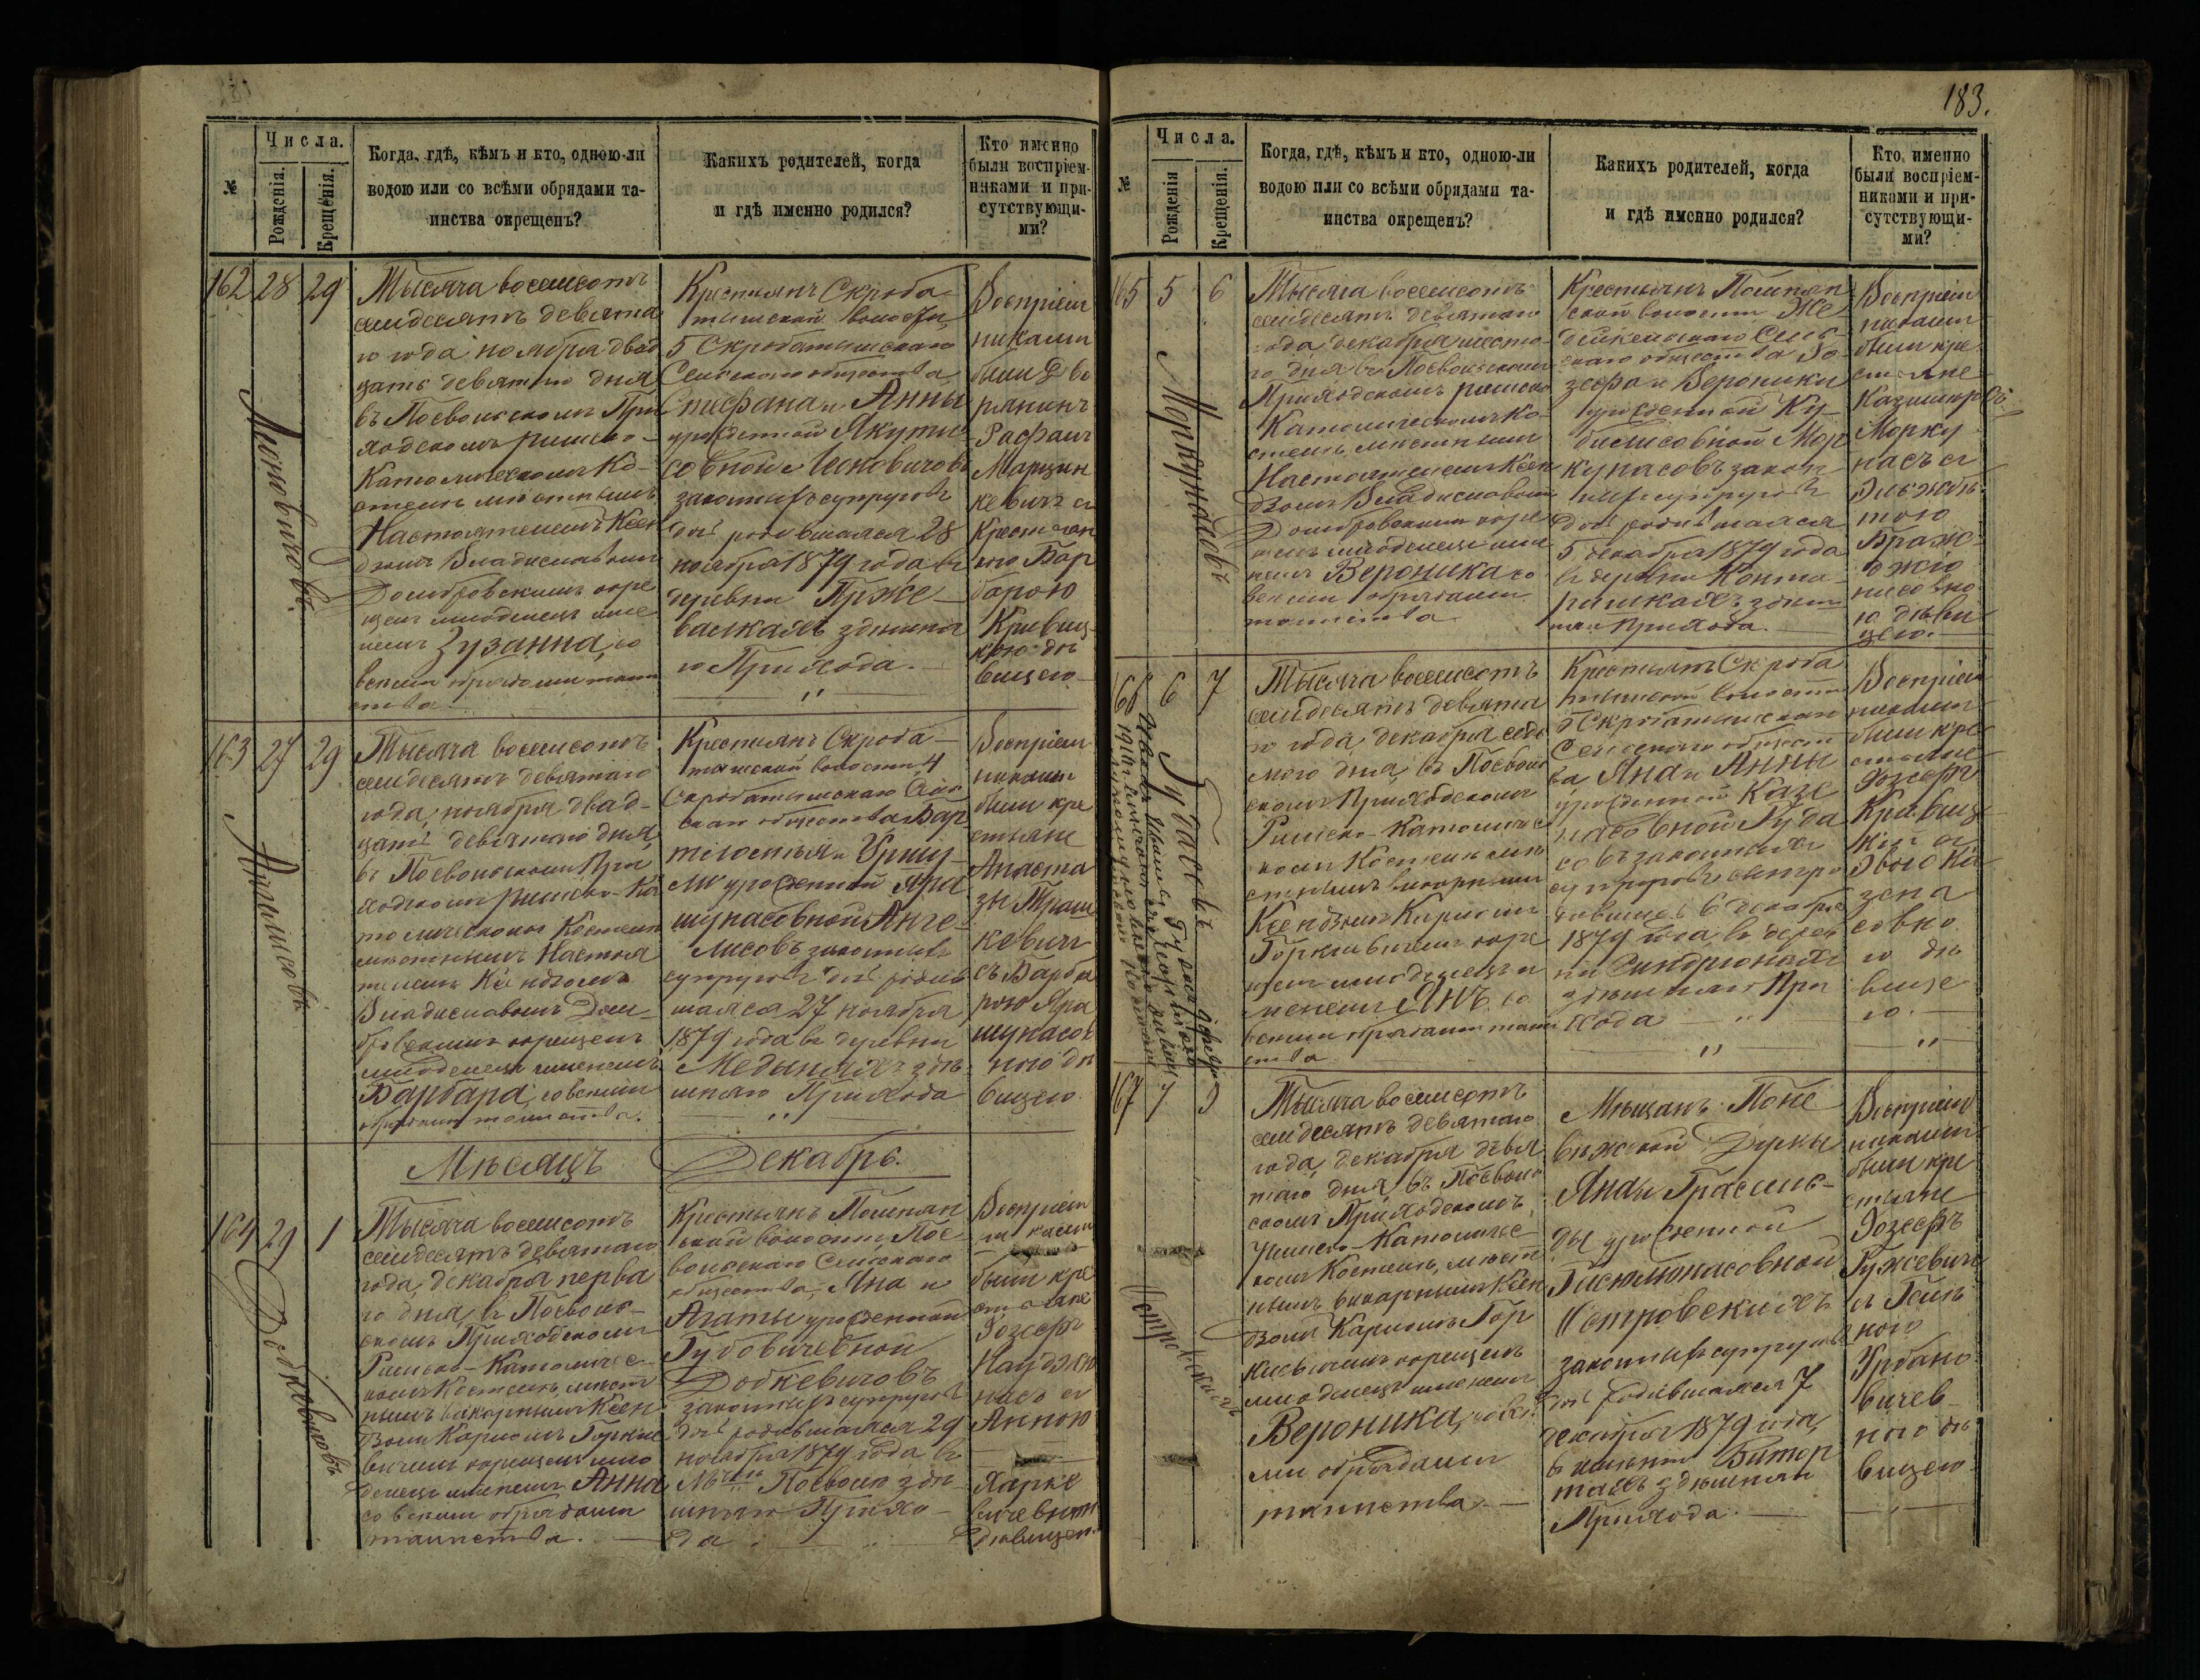 183.
№
Числа.
Рожденія.
Крещенія.
Когда, гдѣ, кѣмъ и кто, одною-ли
водою или со всѣми обрядами та-
инства окрещенъ?
Какихъ родителей, когда
и гдѣ именно родился?
Кто именно
были воспріем-
никами и при-
сутствующи-
ми?
162 28 29
Тысяча восемсотъ
семдесятъ девята
го года ноября двад
цать девятаго дня
въ Посвольскомъ При
ходскомъ римско-
Католическомъ Ко-
стелѣ мѣстнымъ
Настоятелемъ Ксен
дзомъ Владиславомъ
Домбровскимъ окре
щенъ младенецъ име
немъ Зузанна, со
всѣми обрядами таин
ства
Крестьянъ Скроба
тишской волости
5 Скробатишскаго
Сельскаго общества
Стефана и Анны
урожденной Якути
совной
законныхъ супруговъ
дочь родившаяся 28
ноября 1879 года въ
деревни Прже-
валкахъ здѣшня
го Прихода.
Воспріем
никами
были Дво
рянинъ
Рафалъ
Марцин
кевичъ съ
Крестьян
кою Бар
барою
Кривиц-
кою дѣ
вицею
163 27 29
Тысяча восемсотъ
семдесятъ девятаго
года, ноября двад-
цать девятаго дня
въ Посвольскомъ При
ходскомъ римско-Ка
толическомъ Костелѣ
мѣстнымъ Настоя
телемъ Ксендзомъ
Владиславомъ Дом-
бровскимъ окрещенъ
младенецъ именемъ
Барбара, со всѣми
обрядами таинства.
Крестьянъ Скроба-
тишской волости 4
Скробатишскаго Сель
скаго общества Бар-
толомея и Уршу-
ли урожденной Яра
шунасовной Анге-
лисовъ законныхъ
супруговъ дочь родив
шаяся 27 ноября
1879 года въ деревни
здѣ
шняго Прихода
Воспріем
никами
были кре
стьяне
Анаста
зы Траш
кевичъ
съ Барба
рою Яра
шунасов
ною дѣ
вицею.
Ангелисовъ
Мѣсяцъ Декабрь.
164 29 1
Тысяча восемсотъ
семдесятъ девятаго
года, декабря перва
го дня, въ Посволь-
скомъ Приходскомъ
Римско-Католичес-
комъ Костелѣ, мѣст
нымъ викарнымъ Ксен
дзомъ Каролемъ Горкие
вичемъ окрещенъ мла
денецъ именемъ Анна
со всѣми обрядами
таинства.
Крестьянъ Помпян
ской волости, Пос-
вольскаго Сельскаго
общества, Яна и
Агаты урожденной
Губовичевной
Добкевичовъ
законныхъ супруговъ
дочь родившаяся 29
ноября 1879 года въ
Мѣст. Посволѣ здѣ
шняго Прихо-
да
Воспріем
никами
были кре
стьяне
Іозефъ
насъ съ
Анною
Харке
вичевною
дѣвицею.
Добкевичовъ
№
Числа.
Рожденія
Крещенія.
Когда, гдѣ, кѣмъ и кто, одною-ли
водою или со всѣми обрядами та-
инства окрещенъ?
Какихъ родителей, когда
и гдѣ именно родился?
Кто именно
были воспріем-
никами и при-
сутствующи-
ми?
165 5 6
Тысяча восемсотъ
семдесятъ девятаго
года декабря шеста-
го дня въ Посвольскомъ
Приходскомъ римско
Католическомъ Ко-
стелѣ, мѣстнымъ
Настоятелемъ Ксен
дзомъ Владиславомъ
Домбровскимъ окре
щенъ младенецъ име
немъ Вероника со
всѣми обрядами
таинства
Крестьянъ Помпян
ской волости
Сель-
скаго общества Іо-
зефа и Вероники
урожденной Ку-
билисовной Мор
кунасовъ закон
ныхъ супруговъ
дочь родившаяся
5 декабря 1879 года
въ деревни Конта-
ришкахъ здѣш
няго Прихода.
Воспріем
никами
были кре
стьяне
Казимиръ
Морку
насъ съ
Эльжбѣ-
тою
Браж-
нисовно
ю дѣви
цею.
Моркунасовъ
166 6 7
Тысяча восемсотъ
семдесятъ девята
го года, декабря седь
мого дня, въ Посволь
скомъ Приходскомъ
Римско-Католичес
комъ Костелѣ мѣ
стнымъ викарнымъ
Ксендзомъ Каролемъ
Горкевичемъ окре
щенъ младенецъ и
менемъ Янъ, со
всѣми обрядами таин
ства
Крестьянъ Скроба
тишской волости
5 Скробатишскаго
Сельскаго общест
ва Яна и Анны
урожденной Казе
насовной Гуда
совъ законныхъ
супруговъ сынъ ро
дившися 6 декабря
1879 года, въ дерев
ни Синдріонахъ
здѣшняго При
хода
Воспріем
никами
были кре
стьяне
Іозефъ
Кривиц-
кій съ
Эвою Ка
зена
совно
ю дѣ
вице
ю.
Гудасовъ
167 7 9
Тысяча восемсотъ
семдесятъ девятаго
года, декабря девя
таго дня, въ Посволь
скомъ Приходскомъ,
Римско-Католичес-
комъ Костелѣ, мѣст
нымъ викарнымъ Ксен
дзомъ Каролемъ Гор
киевичемъ окрещенъ
младенецъ именемъ
Вероника, со всѣ
ми обрядами
таинства
Мѣщанъ Поне
вѣжской Думы
Яна и Грасиль-
ды урожденной
Петровскихъ
законныхъ супруговъ
дочь родившаяся 7
декабря 1879 года,
въ имѣніи Битор
тахъ здѣшняго
Прихода.
Воспріем
никами
были кре
стьяне
Іозефъ
Гужевичъ
съ Геле
ною
Урбано-
вичев-
ною дѣ
вицею
Петровскихъ